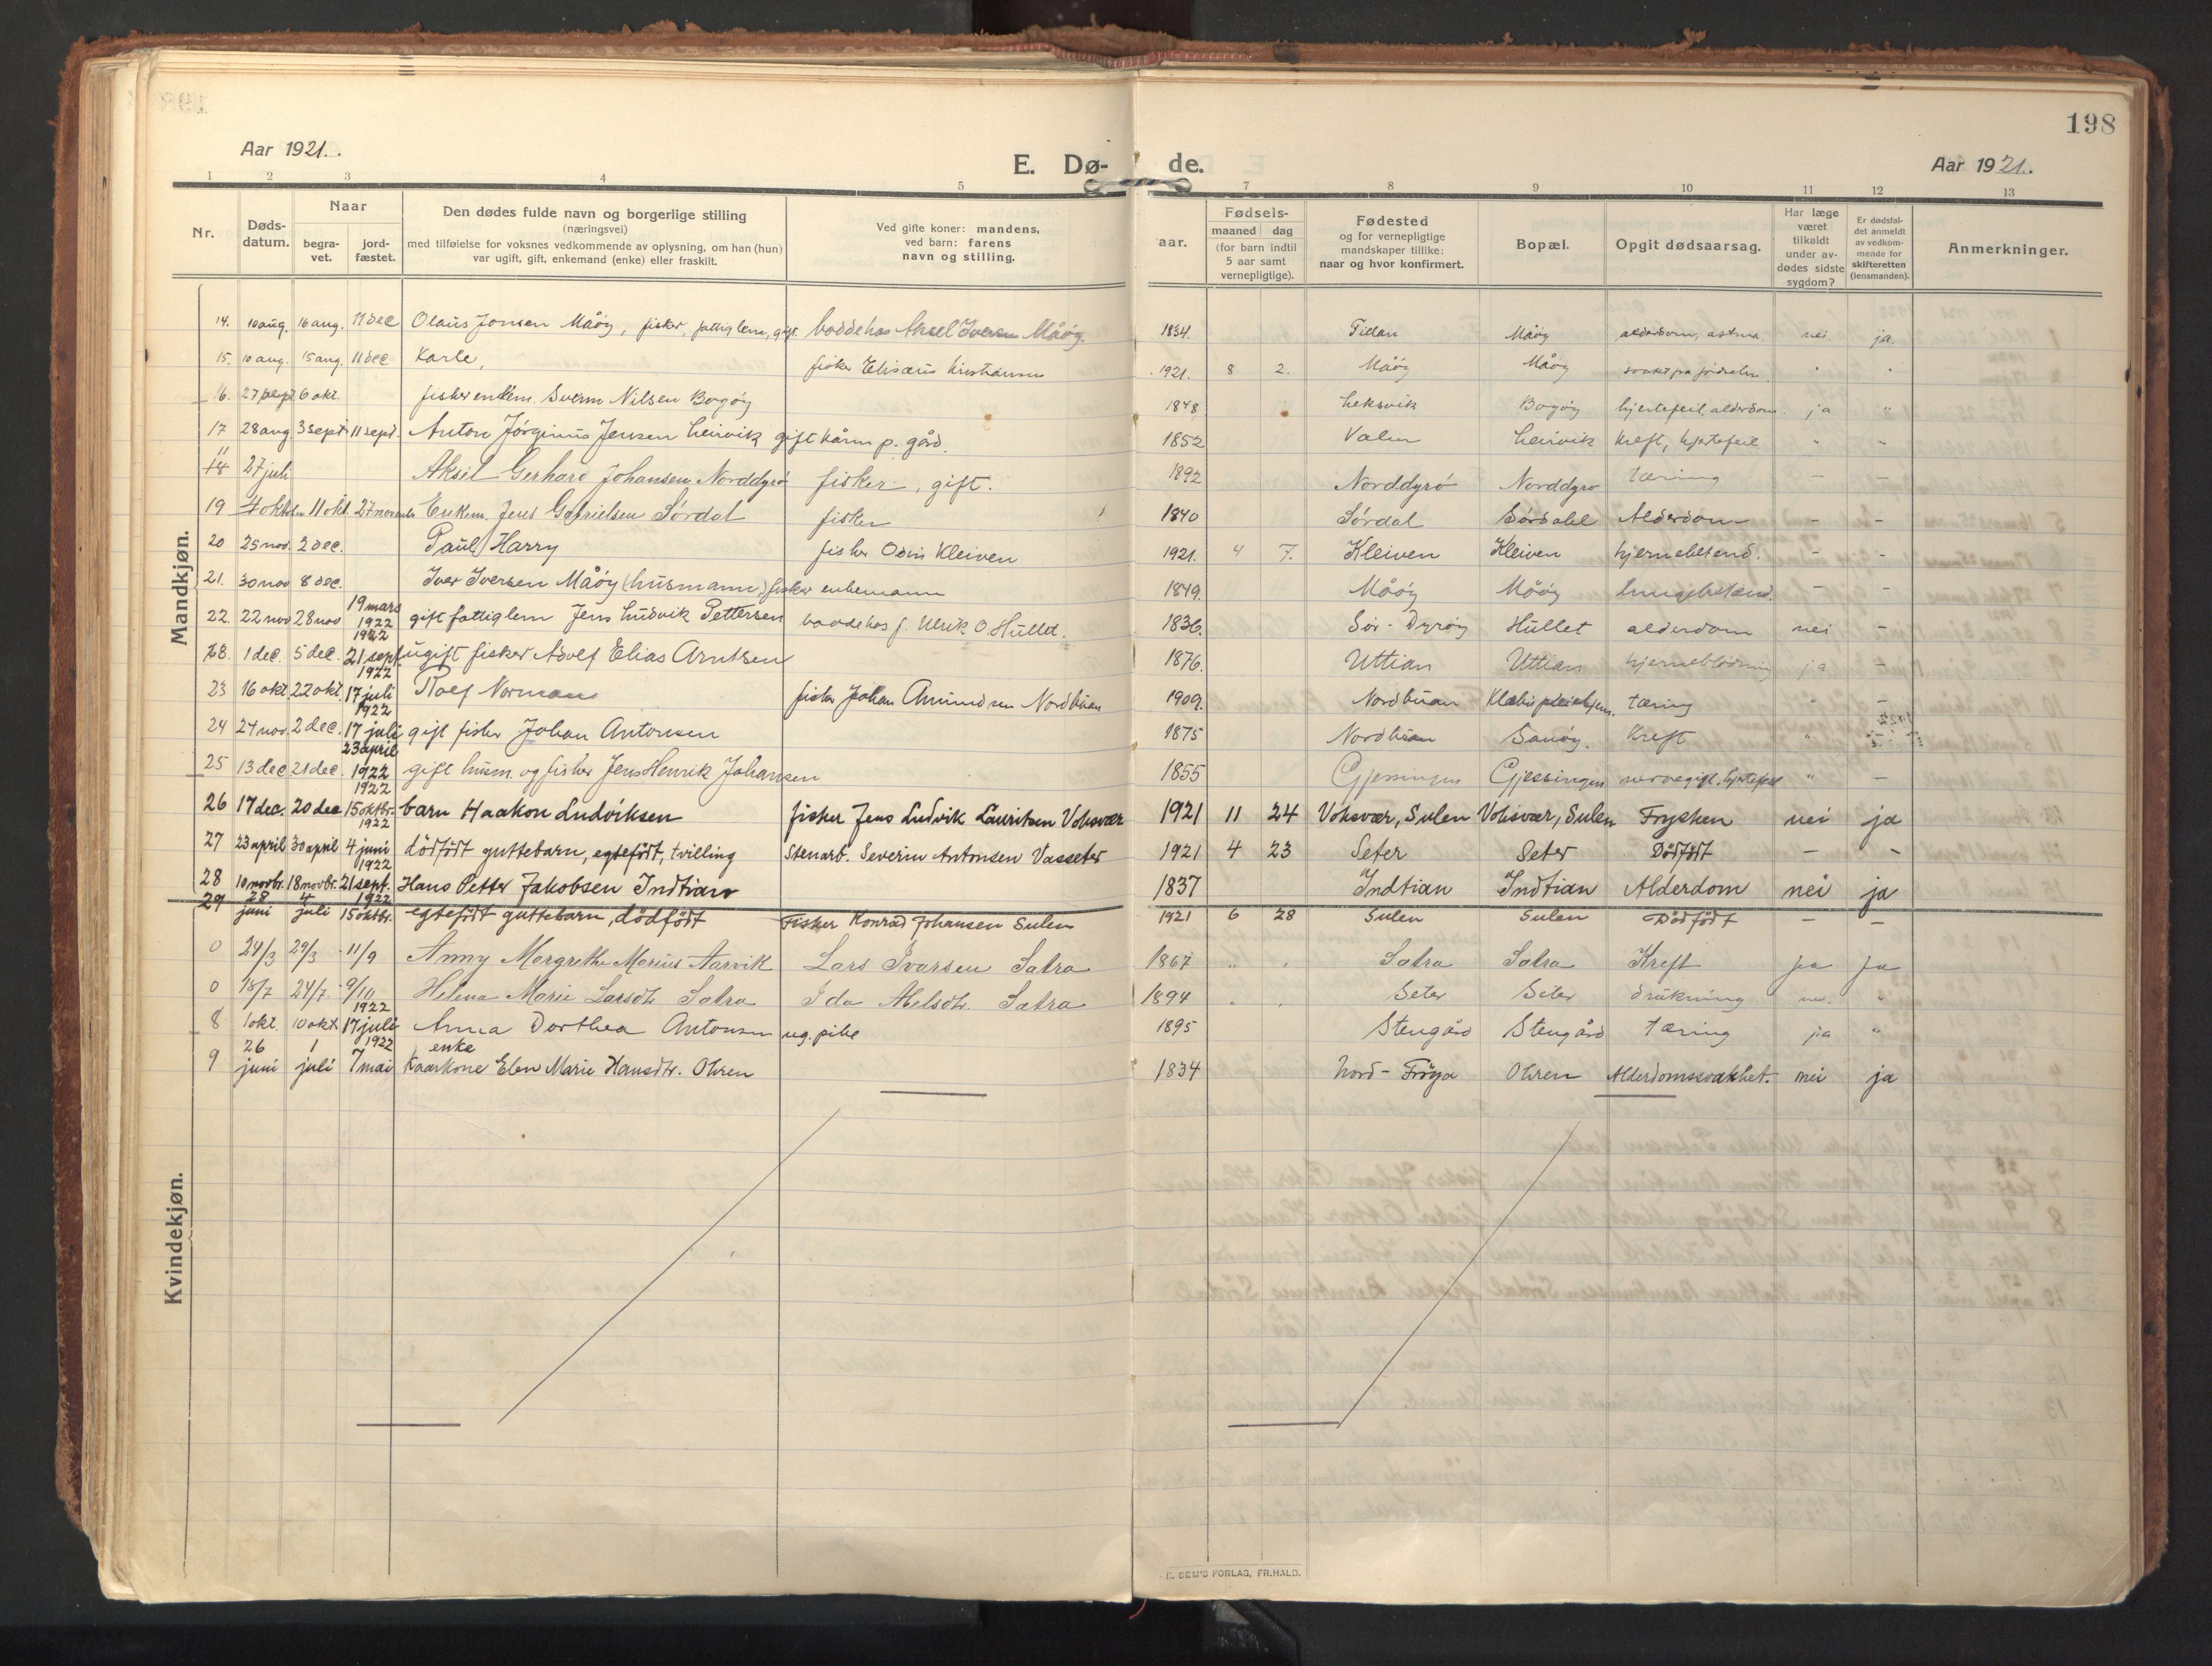 198
Aar 1921.
E. Dø-
de.
Aar 1921.
1 2 3 4 5 7 8 9 10 11 12 13
Nr.
Døds-
datum.
Naar
begra-
vet.
jord-
fæstet.
Den dødes fulde navn og borgerlige stilling
(næringsvei)
med tilføielse for voksnes vedkommende av oplysning, om han (hun)
var ugift, gift, enkemand (enke) eller fraskilt.
Ved gifte koner: mandens,
ved barn: farens
navn og stilling.
aar.
Fødsels-
maaned dag
(for barn indtil
5 aar samt
vernepligtige).
Fødested
og for vernepligtige
mandskaper tillike:
naar og hvor konfirmert.
Bopæl.
Opgit dødsaarsag.
Har læge
været
tilkaldt
under av-
dødes sidste
sygdom?
Er dødsfal-
det anmeldt
av vedkom-
mende for
skifteretten
(lensmanden).
Anmerkninger.
Mandkjøn.
14. 10 aug. 16 aug. 11 dec Olaus Jonsen Måöy, fisker, fattiglem, gift. boddehos Aksel Iversen Måöy. 1834. Tillan Måöy alderdom, astma nei ja.
15. 10 aug. 15 aug. 11 dec Karle, fisker Elisæus Kristiansen 1921. 8 2. Måöy Måöy svakt fra födselen " "
16. 27 sept 6 okt. fisher enkem. Sverin Nilsen Bogöy 1848 Leksvik Bogöy hjertefeil, alderdom ja "
17 28 aug. 3 sept 11 sept. Anton Jörginus Jensen Leirvik gift kårm p. gård. 1852 Valen Leirvik Kreft, hjertefeil " "
18 27 juli Aksel Gerhard Johansen Norddyrö fisker, gift. 1892 Norddyrö Norddyrö tæring — —
19 4 oktbr 11 okt. 27 novembr Enkem. Jens Gabrielsen Sördal fisker 1840 Sördal Sördahl Alderdom — —
20 25 nov. 2 dec. Paul Harry fisker Odin Kleiven 1921. 4 7. Kleiven Kleiven hjernebetend. — —
21. 30 nov 8 dec. Iver Iversen Måöy (husmann,) fisker enkemann 1849. Måöy Måöy lungebetænd. — —
22. 22 nov 28 nov 19 mars 1922 gift fattiglem Jens Ludvik Pettersen boddehos f. Ulrik O. Hullet. 1836. Sör-Dyröy Hullet alderdom nei —
28. 1 dec. 5 dec. 21 sept. 1922 ugift fisker Adolf Elias Arntsen 1876. Uttian Uttian hjerneblödning ja —
23 16 okt 22 okt. 17 juli 1922 Rolf Norman fisker Johan Amundsen Nordbuan 1909. Nordbuan Klæbu pleiehjem. tæring " —
24 24 nov. 2 dec. 17 juli 1922 gift fisker Johan Antonsen 1875 Nordbuan Sauöy. Kreft "
25 13 dec 21 dec. 23 april 1922 gift husm. og fisher Jens Henrik Johansen 1855 Gjessingen Gjessingen nervegigt. hjertefeil " —
26 17 dec. 20 dec 15 oktbr. 1922 barn Haakon Ludviksen fisker Jens Ludvik Lauritsen Voksvær 1921 11 24 Voksvær, Sulen Voksvær, Sulen Frysken nei ja
27 23 april 30 april 4 juni 1922 dödfödt guttebarn, egtefödt, tvilling Stenarb. Severin Antonsen Vasseter 1921 4 23 Seter Seter Dödfödt — —
28 10 novbr. 18 novbr. 21 sept. 1922 Hans Petter Jakobsen Indtian 1837 Indtian Indtian Alderdom nei ja
29 28 juni 4 juli 15 oktbr. 1922 egtefödt guttebarn, dödfödt Fisker Konrad Johansen Sulen 1921 6 28 Sulen Sulen Dödfödt — —
Kvindekjøn.
0 24/3 29/3 11/9 Anny Margrethe Marius Aarvik Lars Ivarsen Satra 1867 " " Satra Satra Kreft ja ja
0 18/7 24/7 9/10 Helena Marie Larsdtr. Satra Ida Abelsdtr. Satra 1894 " " Seter Seter drukning "
8 1 okt. 10 okt 17 juli 1922 Anna Dorthea Antonsen ug. pike 1895 Stengård Stengård tæring ja "
9 26 juni 1 juli 7 mai 1922 enke Kaarkone Elen Marie Hansdtr. Ohren 1834 Nord-Fröya Ohren Alderdomssvakhet. nei ja
E. SEM'S FORLAG, FR.HALD.